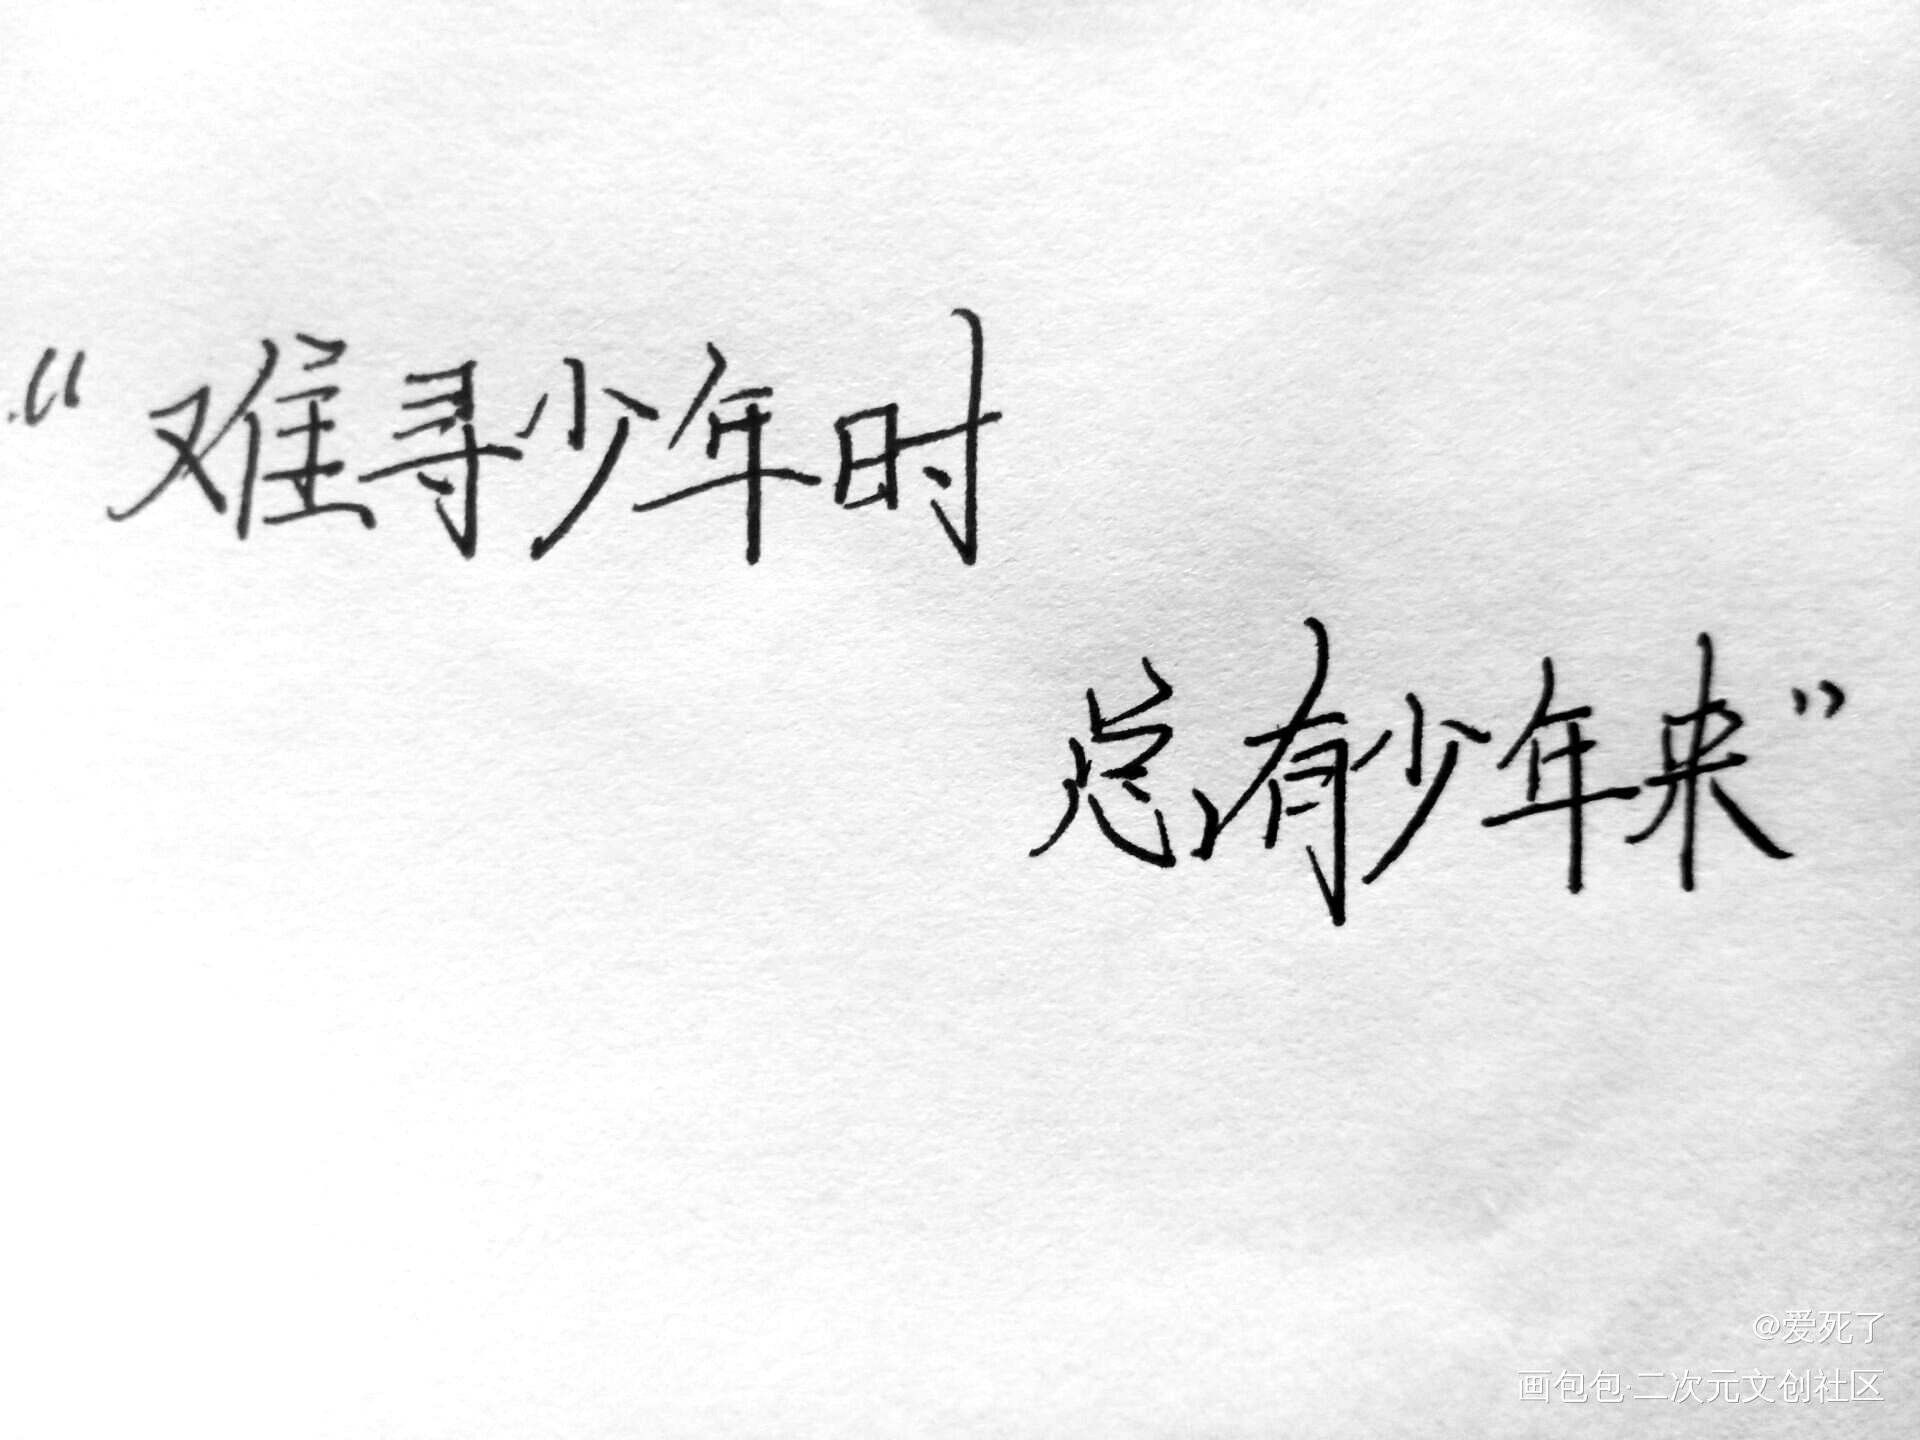 “难寻少年时
总有少年来”
@爱死了
画包包·二次元文创社区